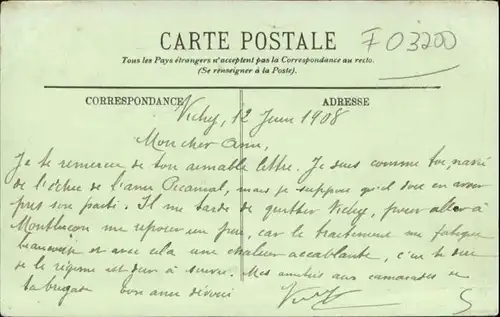 CARTE POSTALE
F 03200
Tous les Pays étrangers n'acceptent pas la Correspondance au recto.
(Se renseigner à la Poste).
CORRESPONDANCE
ADRESSE
Vichy, 12 Juin 1908
Mon cher Ami,
Je te remercie de ton aimable lettre. Je suis comme toi, navré
de l'échec de l'ami Picamal, mais je suppose qu'il doit en avoir
pris son parti. Il me tarde de quitter Vichy, pour aller à
Montluçon me reposer un peu, car le traitement me fatigue
beaucoup et avec cela une chaleur accablante, c'est te dire
si le régime est dur à suivre. Mes amitiés aux camarades de
ta brigade ton ami dévoué